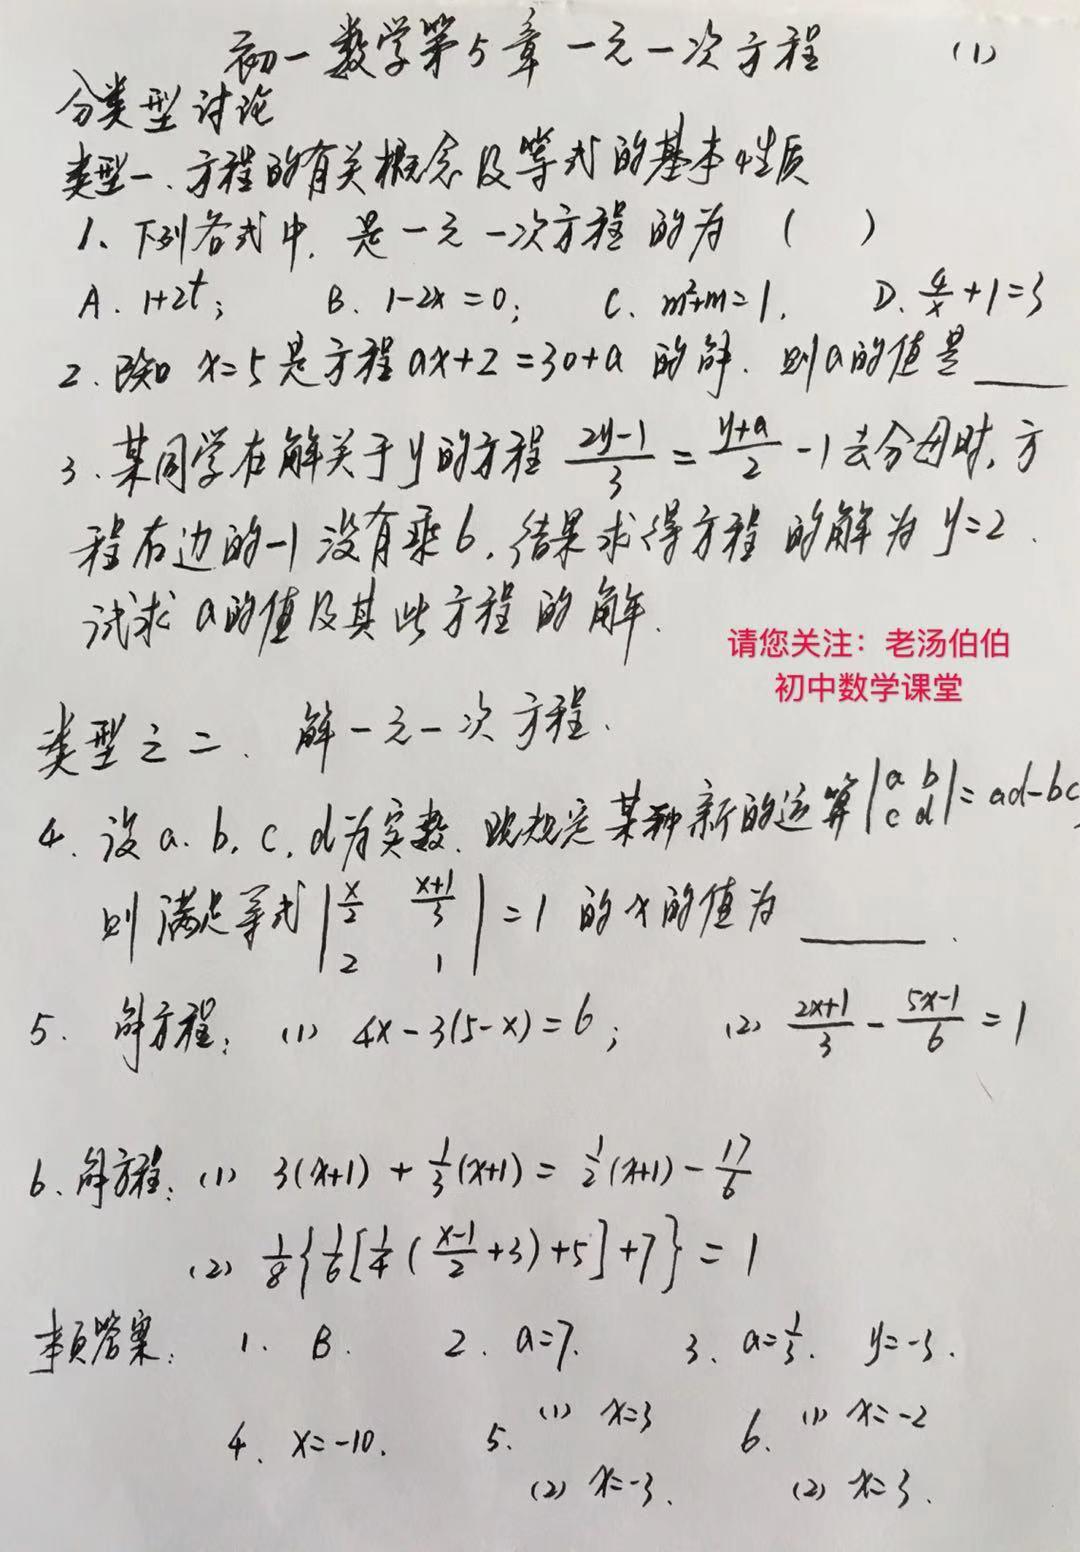 初一数学第5章一元一次方程 (1)
分类型讨论
类型一、方程的有关概念及等式的基本性质
1、下列各式中,是一元一次方程的为 ( )
A. 1+2t; B. 1-2x=0; C. m²+m=1, D. 4/x+1=3
2、已知 x=5是方程ax+2=30+a 的解.则a的值是____
3、某同学在解关于y的方程 (2y-1)/3=(y+a)/2-1去分母时,方
程右边的-1没有乘6,结果求得方程的解为y=2.
试求a的值及其此方程的解.
请您关注:老汤伯伯
初中数学课堂
类型之二、解一元一次方程.
4、设a.b,c,d为实数.现规定某种新的运算|a b; c d|=ad-bc,
则满足等式|x/2 (x+1)/3; 2 1|=1的x的值为____.
5. 解方程: (1) 4x-3(5-x)=6; (2) (2x+1)/3-(5x-1)/6=1
6、解方程: (1) 3(x+1)+1/3(x+1)=1/2(x+1)-17/6
(2) 1/8{1/6[1/4((x-1)/2+3)+5]+7}=1
本页答案: 1. B. 2. a=7. 3、a=1/3. y=-3.
4、x=-10. 5. (1) x=3 6. (1) x=-2
(2) x=-3. (2) x=3.